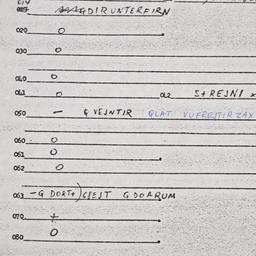 GDIRUNTERFIRN
020 O
030 O
040 O
041 O 042 S+REJNI x
050 — G VEJNTIR GLAT VUFREMTIRZAX
060 O
061 O
062 O
063 -G DORT+)GEEJT GDOARUM
070 +
080 O